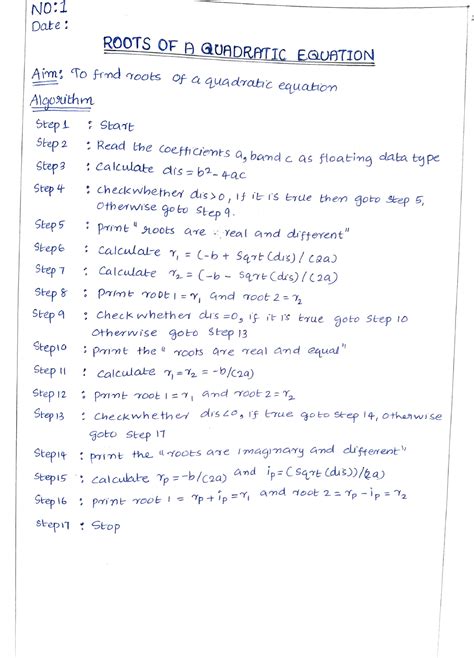 NO:1
Date:
ROOTS OF A QUADRATIC EQUATION
Aim: To find roots of a quadratic equation
Algorithm
Step 1 : Start
Step 2 : Read the coefficients a, b and c as floating data type
Step 3 : Calculate dis = b²-4ac
Step 4 : check whether dis>0, If it is true then goto step 5,
Otherwise goto Step 9.
Step 5 : print "roots are real and different"
Step 6 : Calculate r₁ = (-b + Sqrt(dis)/(2a)
Step 7 : Calculate r₂ = (-b - Sqrt(dis)/(2a)
Step 8 : Print root 1 = r₁ and root 2 = r₂
Step 9 : Check whether dis =0, if it is true goto Step 10
Otherwise goto Step 13
Step 10 : print the "roots are real and equal"
Step 11 : calculate r₁=r₂ = -b/(2a)
Step 12 : print root 1 = r₁ and root 2 = r₂
Step 13 : check whether dis<0, if true goto step 14, otherwise
goto Step 17
Step 14 : print the "roots are imaginary and different"
Step 15 : calculate rp = -b/(2a) and ip = (Sqrt(dis))/(2a)
Step 16 : print root 1 = rp + ip = r₁ and root 2 = rp - ip = r₂
Step 17 : Stop